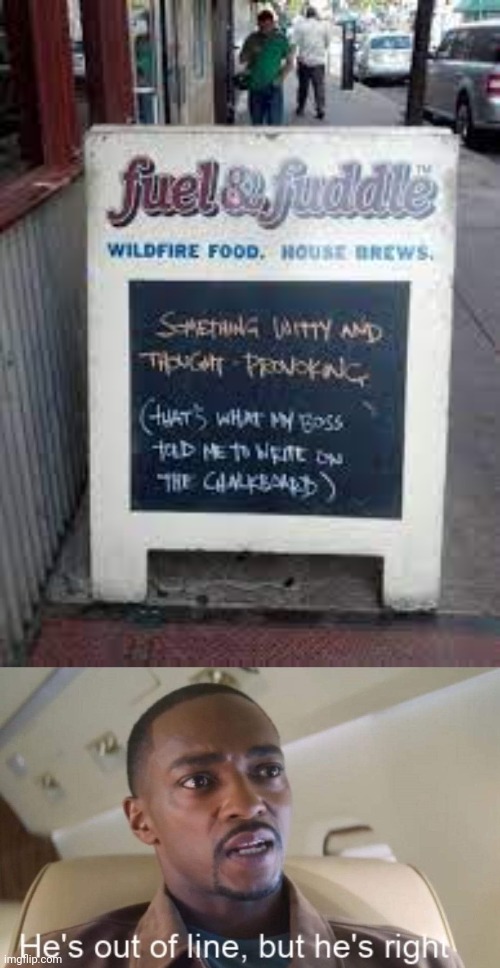 fuel & fuddle™
WILDFIRE FOOD. HOUSE BREWS.
SOMETHING WITTY AND
THOUGHT-PROVOKING
(THAT'S WHAT MY BOSS
TOLD ME TO WRITE ON
THE CHALKBOARD)
He's out of line, but he's right
imgflip.com